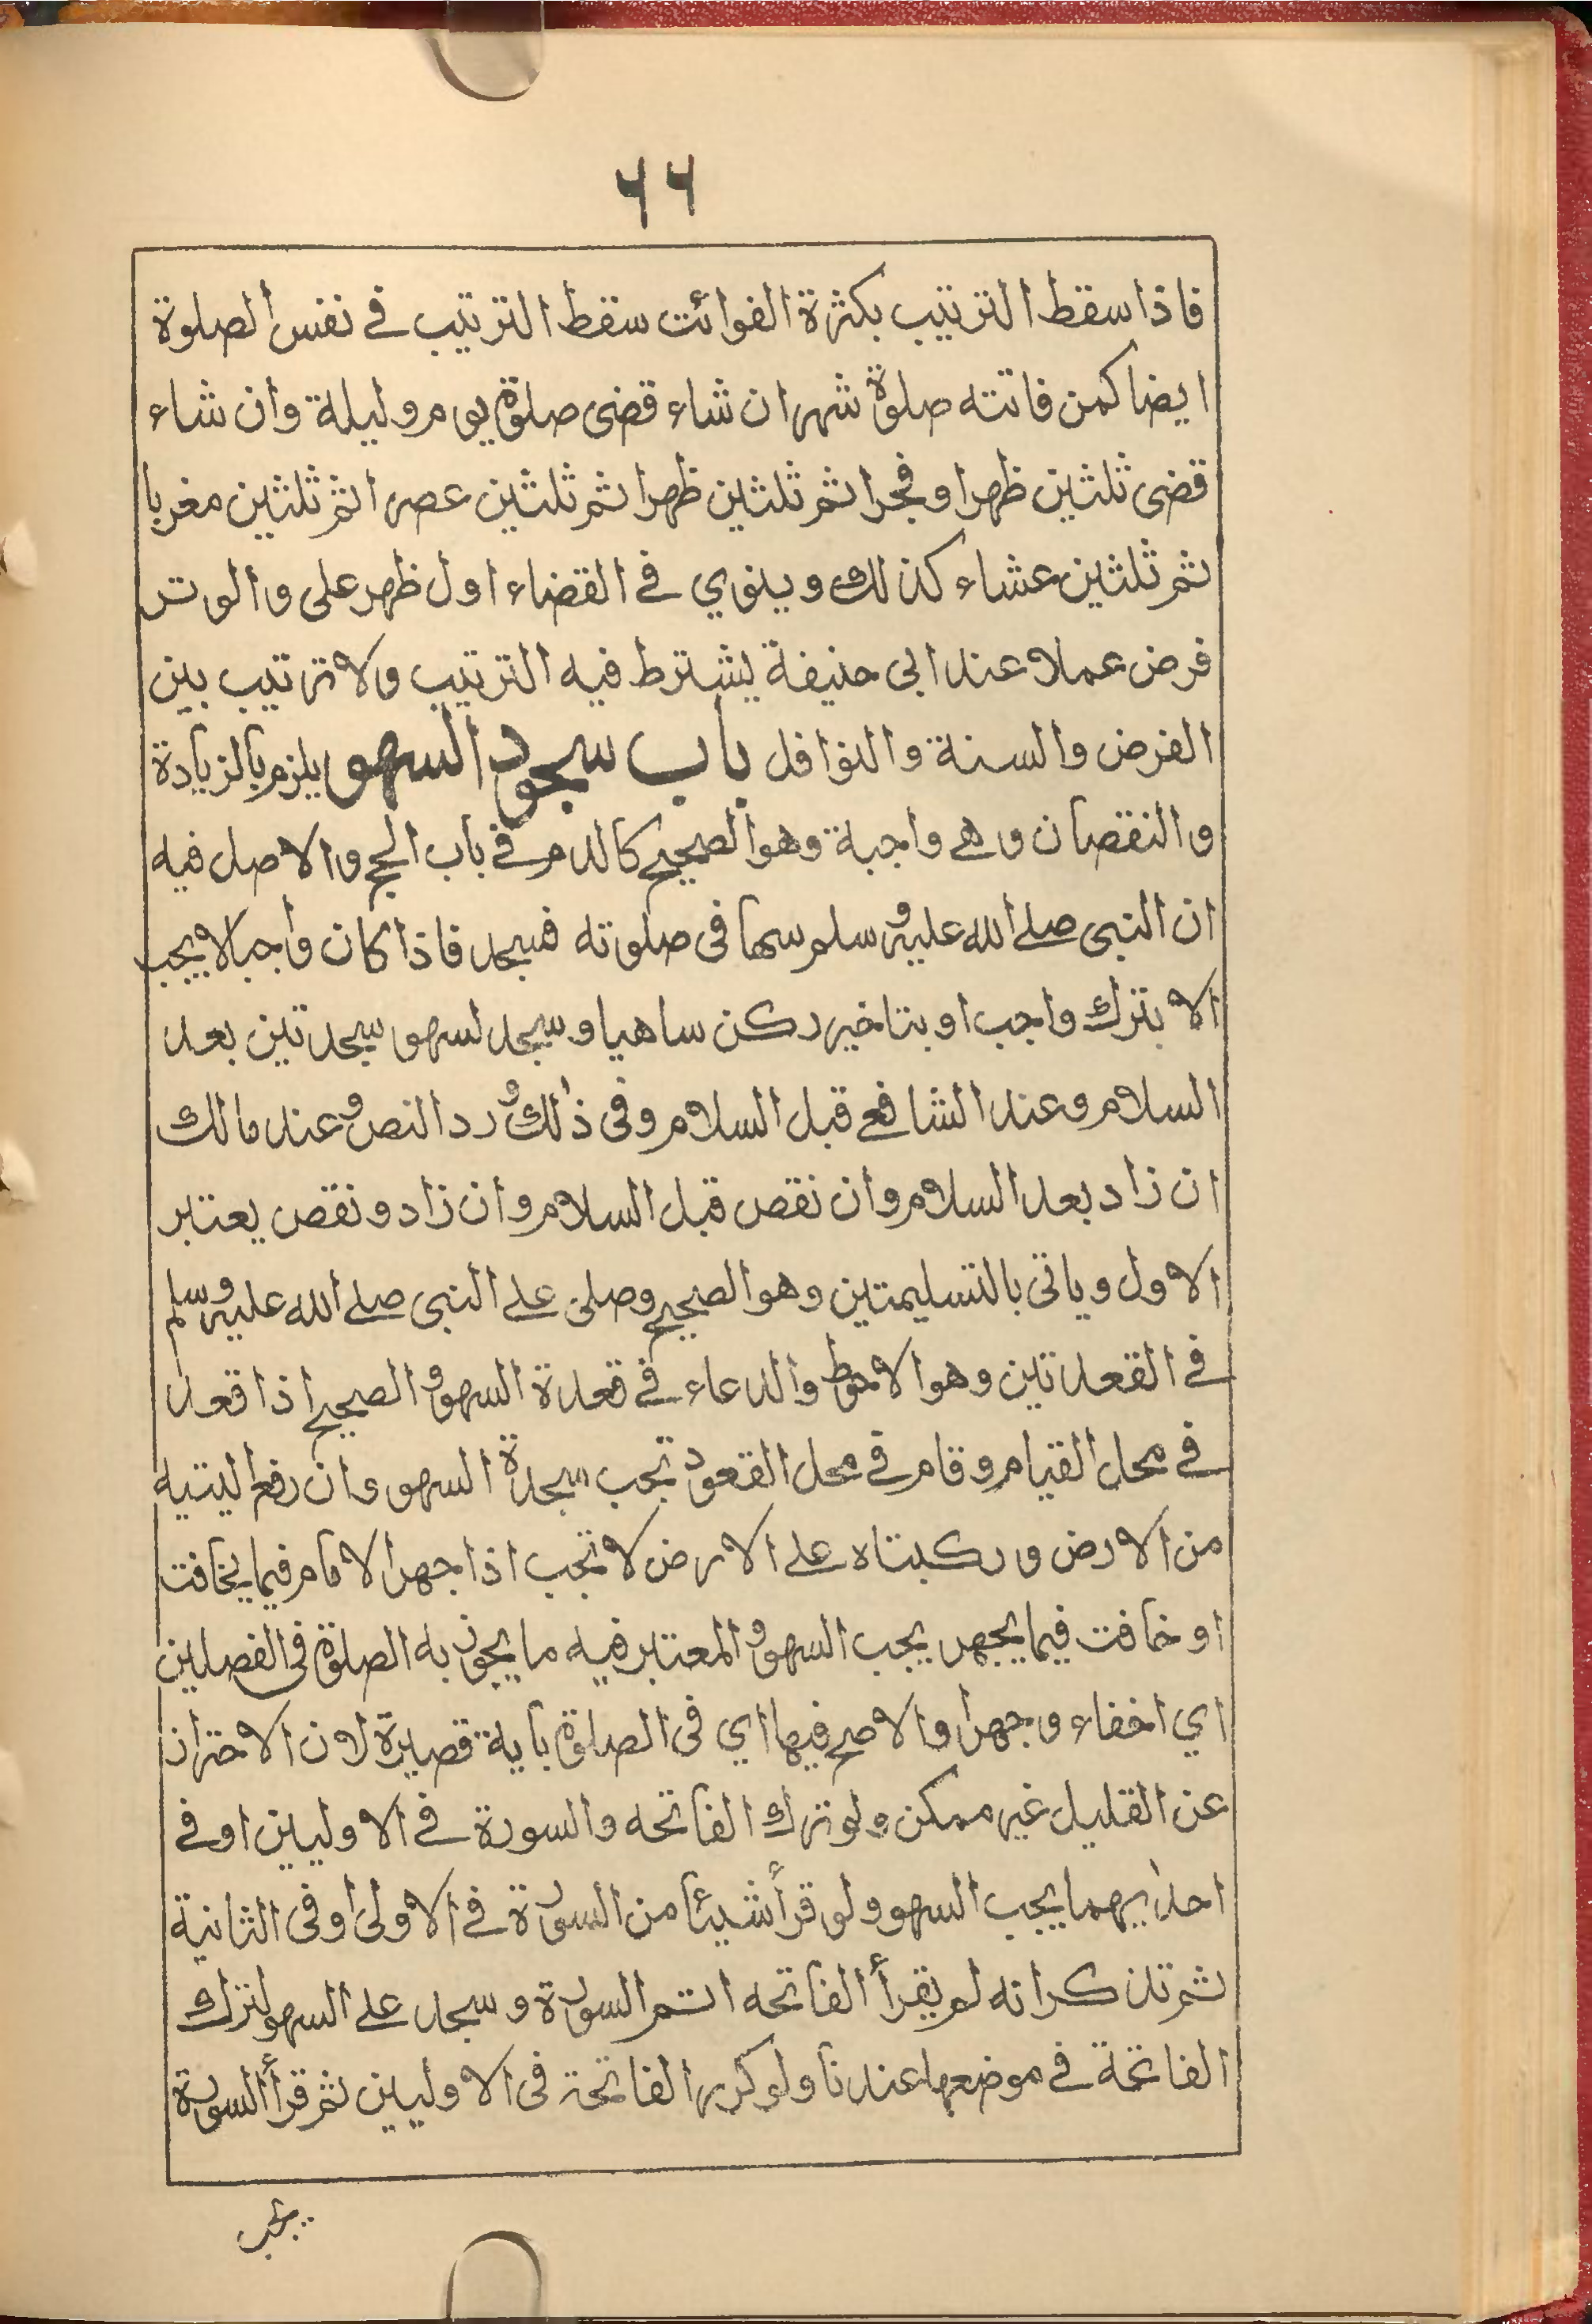 ٦٦
فاذا سقط الترتيب بكثرة الفوائت سقط الترتيب فى نفس الصلوة
ايضا كمن فاتته صلوة شهر ان شاء قضى صلوة يوم وليلة وان شاء
قضى ثلثين ظهرا وفجرا ثم ثلثين ظهرا ثم ثلثين عصرا ثم ثلثين مغربا
ثم ثلثين عشاء كذلك وينوي فى القضاء اول ظهر على والوتر
فرض عملا عند ابى حنيفة يشترط فيه الترتيب ولا ترتيب بين
الفرض والسنة والنوافل باب سجود السهو يلزم بالزيادة
والنقصان وهى واجبة وهو الصحيح كالدم فى باب الحج والاصل فيه
ان النبى صلى الله عليه وسلم سها فى صلوته فسجد فاذا كان واجبا لا يجب
الا بترك واجب او بتاخير ركن ساهيا و سجد لسهو سجدتين بعد
السلام وعند الشافعى قبل السلام وفى ذلك ورد النص وعند مالك
ان زاد بعد السلام وان نقص قبل السلام وان زاد ونقص يعتبر
الاول وياتى بالتسليمتين وهو الصحيح وصلى على النبى صلى الله عليه وسلم
فى القعدتين وهو الاحوط والدعاء فى قعدة السهو و الصحيح اذا قعد
فى محل القيام وقام فى محل القعود تجب سجدة السهو وان رفع اليتيه
من الارض وركبتاه على الارض لا تجب اذا جهر الامام فيما يخافت
او خافت فيما يجهر يجب السهو و المعتبر فيه ما يجوز به الصلوة فى الفصلين
اي اخفاء وجهرا والاصح فيها اي فى الصلوة بآية قصيرة لان الاحتراز
عن القليل غير ممكن ولو ترك الفاتحه والسورة فى الاوليين او فى
احدايهما يجب السهو ولو قرأ شيئا من السورة فى الاولى او فى الثانية
ثم تذكر انه لم يقرأ الفاتحه اتم السورة و سجد على السهو لترك
الفاتحة فى موضعها عندنا ولو كرر الفاتحة فى الاوليين ثم قرأ السورة
يجب